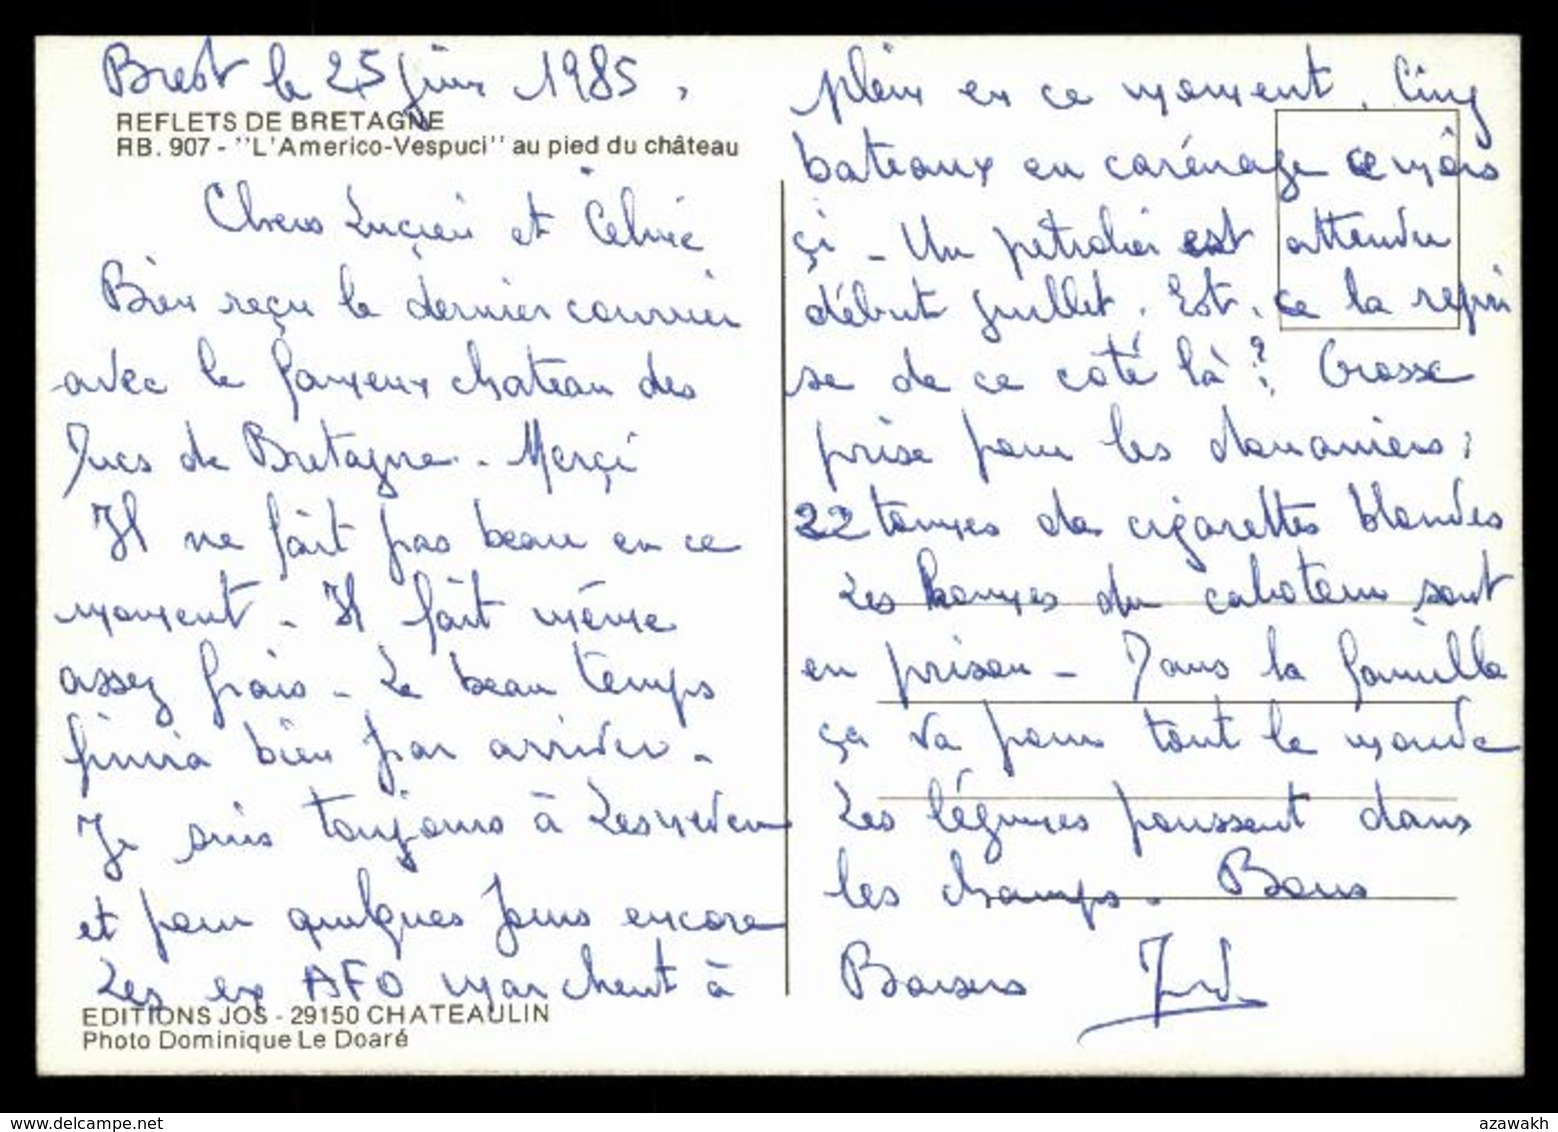 Brest le 25 juin 1985,
REFLETS DE BRETAGNE
RB. 907 - "L'Americo-Vespuci" au pied du château
Chers Lucien et
Bien reçu le dernier courrier
avec le fameux chateau des
Ducs de Bretagne. Merçi
Il ne fait pas beau en ce
moment - Il fait même
assez frais - Le beau temps
finira bien par arriver -
Je suis toujours à Lesneven
et pour quelques jours encore
Les ex AFO marchent à
EDITIONS JOS - 29150 CHATEAULIN
Photo Dominique Le Doaré
plein en ce moment. Cinq
bateaux en carénage ce mois
çi - Un pétrolier est attendu
début juillet. Est-ce la repri
se de ce côté là ? Grosse
prise pour les douaniers :
22 tonnes de cigarettes blondes
Les hommes du caboteur sont
en prison - Dans la famille
ça va pour tout le monde
Les légumes poussent dans
les champs. Bons
Baisers
azawakh